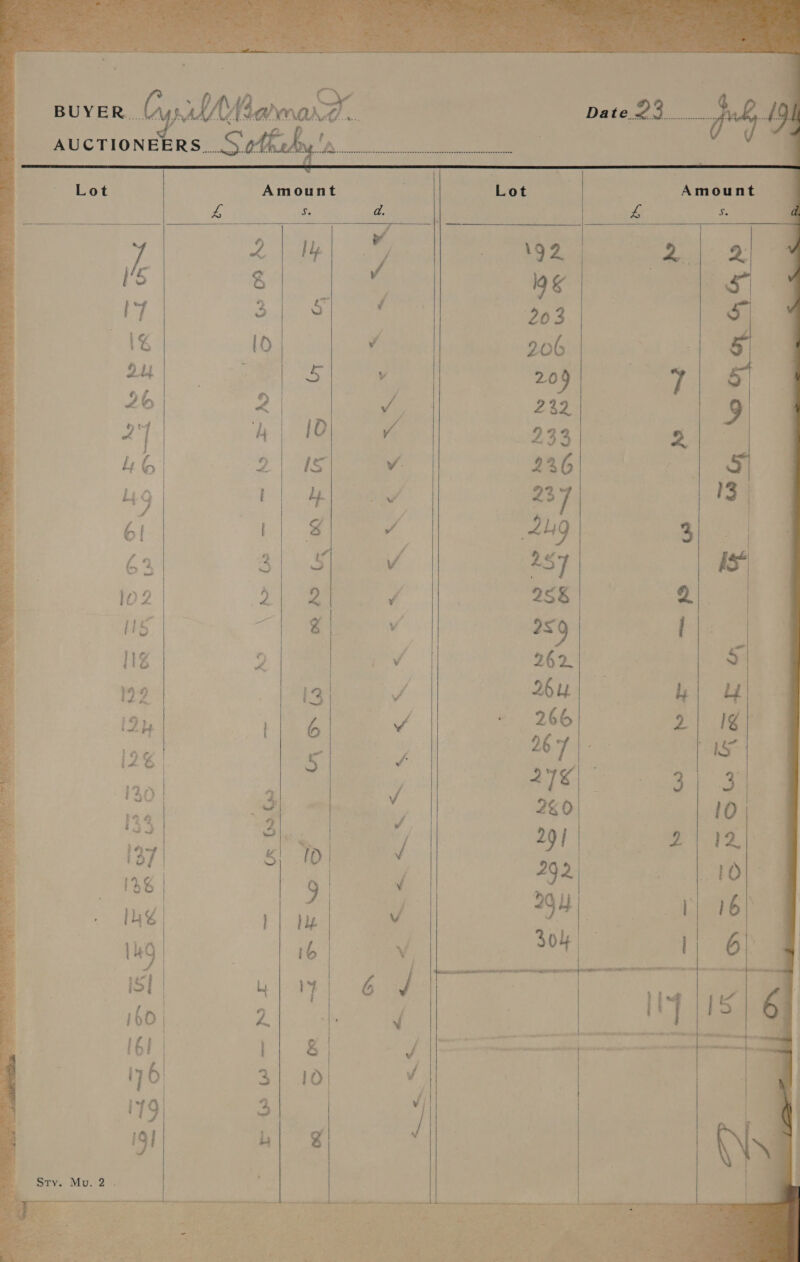 BUYER Cyril M Barnard. Date 23 July 191
AUCTIONEERS Sotheby's
Lot Amount Lot Amount
£ s. d. £ s. d.
7 2 14 ✓ 192 2 2 ✓
15 8 ✓ 198 5 ✓
17 3 5 ✓ 203 5 ✓
18 10 ✓ 206 5
24 5 ✓ 209 7 5
26 2 ✓ 232 9
27 4 10 ✓ 233 2
46 2 15 ✓ 236 5
49 1 4 ✓ 237 13
61 1 8 ✓ 249 3
63 3 5 ✓ 257 15
102 2 2 ✓ 258 2
115 – 8 ✓ 259 1
118 2 ✓ 262 5
122 13 ✓ 264 4 4
124 1 6 ✓ 266 2 18
128 5 ✓ 267 15
130 3 ✓ 278 3 3
133 3 ✓ 280 10
137 5 10 ✓ 291 2 12
138 9 ✓ 292 10
148 1 14 ✓ 294 1 16
149 16 ✓ 304 1 6
151 4 17 6 ✓
160 2 - ✓ 117 15 6
161 1 8 ✓
176 3 10 ✓
179 3 ✓
191 4 8 ✓
Sty. Mu. 2